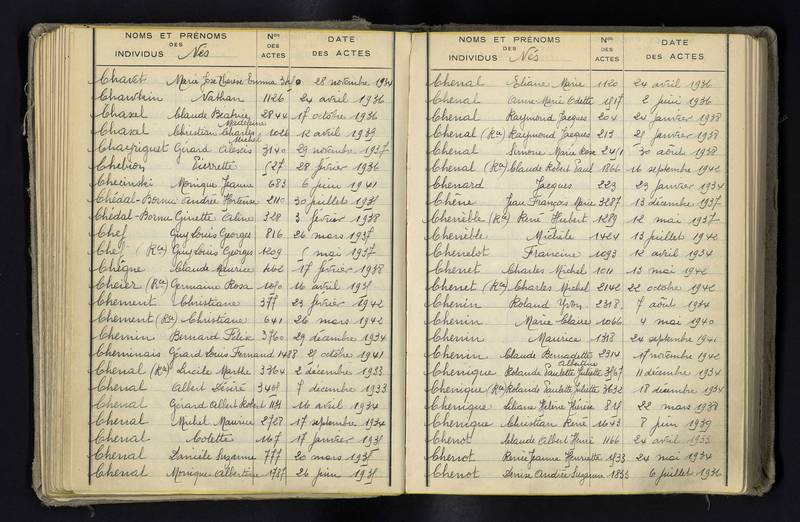 NOMS ET PRÉNOMS DES INDIVIDUS Nés Nos DES ACTES DATE DES ACTES
Chavet Marie José Thérèse Emma 28 novembre 1934
Chawkin Nathan 1126 24 avril 1936
Chazel Claude Béatrice Madeleine 2844 17 octobre 1936
Chazel Christian Charles Michel 1026 12 avril 1939
Chayriguet Gérard Alexis 3140 29 novembre 1937
Chebion Pierrette 28 février 1936
Checinski Monique Jeanne 683 6 juin 1941
Chédal-Bornu Andrée Hortense 2110 30 juillet 1935
Chédal-Bornu Ginette Aline 328 3 février 1938
Chef Guy Louis Georges 816 26 mars 1937
Chef (Ron) Guy Louis Georges 1209 5 mai 1937
Chêgne Claude Maurice 462 17 février 1938
Cheier (Ron) Germaine Rosa 16 avril 1935
Chement Christiane 377 23 février 1942
Chement (Ron) Christiane 641 26 mars 1942
Chemin Bernard Félix 3760 29 décembre 1934
Cheminais Gérard Louis Fernand 1488 21 octobre 1941
Chenal (Ron) Lucile Marthe 3364 2 décembre 1933
Chenal Albert Désiré 3409 7 décembre 1933
Chenal Gérard Albert Robert 1131 16 avril 1934
Chenal Michel Maurice 2728 17 septembre 1934
Chenal Colette 167 17 janvier 1935
Chenal Danièle Suzanne 777 20 mars 1935
Chenal Monique Albertine 1787 26 juin 1935
NOMS ET PRÉNOMS DES INDIVIDUS Nés Nos DES ACTES DATE DES ACTES
Chenal Eliane Marie 1120 24 avril 1936
Chenal Anne Marie Odette 1517 2 juin 1936
Chenal Raymond Jacques 204 24 janvier 1938
Chenal (Ron) Raymond Jacques 213 25 janvier 1938
Chenal Simone Marie Rose 30 août 1938
Chenal (Ron) Claude Robert Paul 1866 16 septembre 1942
Chenard Jacques 223 23 janvier 1934
Chêne Jean François Marie 3287 13 décembre 1937
Chenèble (Ron) René Hubert 1289 12 mai 1937
Chenèble Michèle 1424 13 juillet 1942
Chenelot Francine 1093 12 avril 1934
Chenet Charles Michel 1011 13 mai 1942
Chenet (Ron) Charles Michel 2142 22 octobre 1942
Chenin Roland Yvon 2318 7 août 1934
Chenin Marie Claire 1066 4 mai 1940
Chenin Maurice 1318 24 septembre 1941
Chenin Claude Bernadette Albertine 2314 17 novembre 1942
Chenique Rolande Paulette Juliette 3567 11 décembre 1934
Chenique (Ron) Rolande Paulette Juliette 3632 18 décembre 1934
Chenique Liliane Hélène Thérèse 22 mars 1938
Chenique Christian René 1643 8 juin 1939
Chenot Claude Albert Henri 1166 24 avril 1933
Chenot Renée Jeanne Henriette 1533 24 mai 1934
Chenot Denise Andrée Suzanne 1833 6 juillet 1936